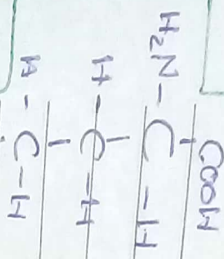 COOH
|
H₂N - C - H
|
H - C - H
|
H - C - H